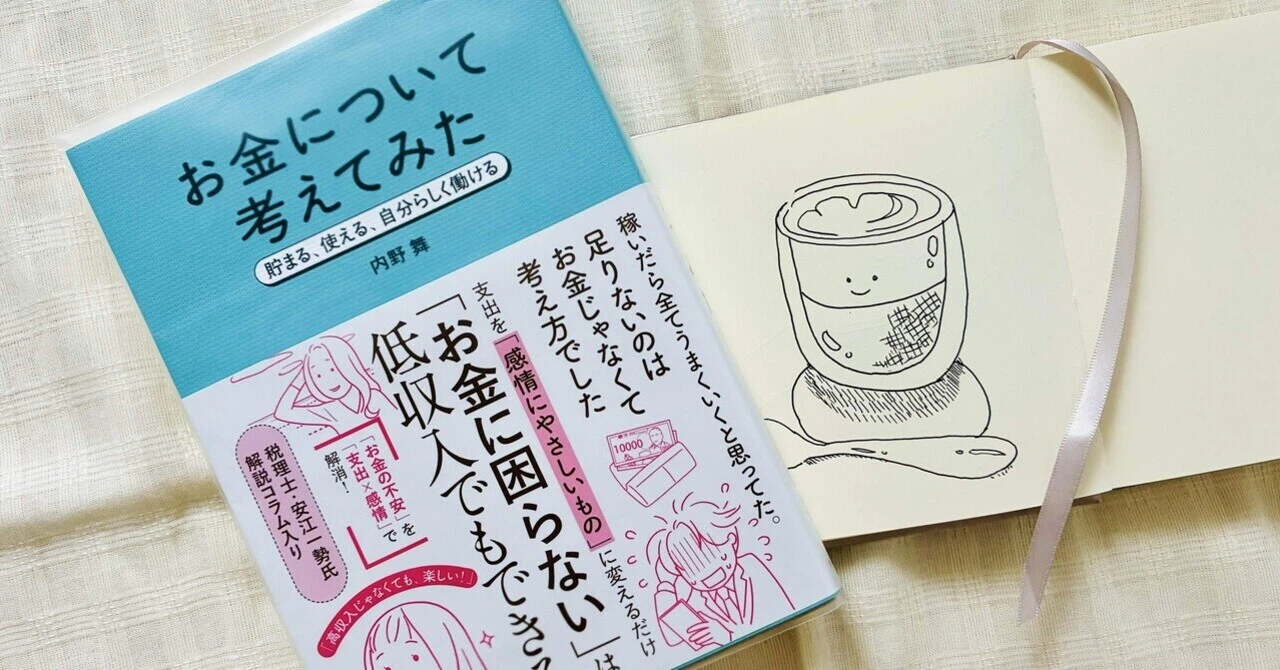 お金について
考えてみた
貯まる、使える、自分らしく働ける
内野 舞
稼いだら全てうまくいくと思ってた。
足りないのは
お金じゃなくて
考え方でした
支出を「感情にやさしいもの」に変えるだけ
「お金に困らない」は
低収入でもできる
10000
「お金の不安」を
「支出×感情」で
解消!
税理士・安江一勢氏
解説コラム入り
「高収入じゃなくても、楽しい!」